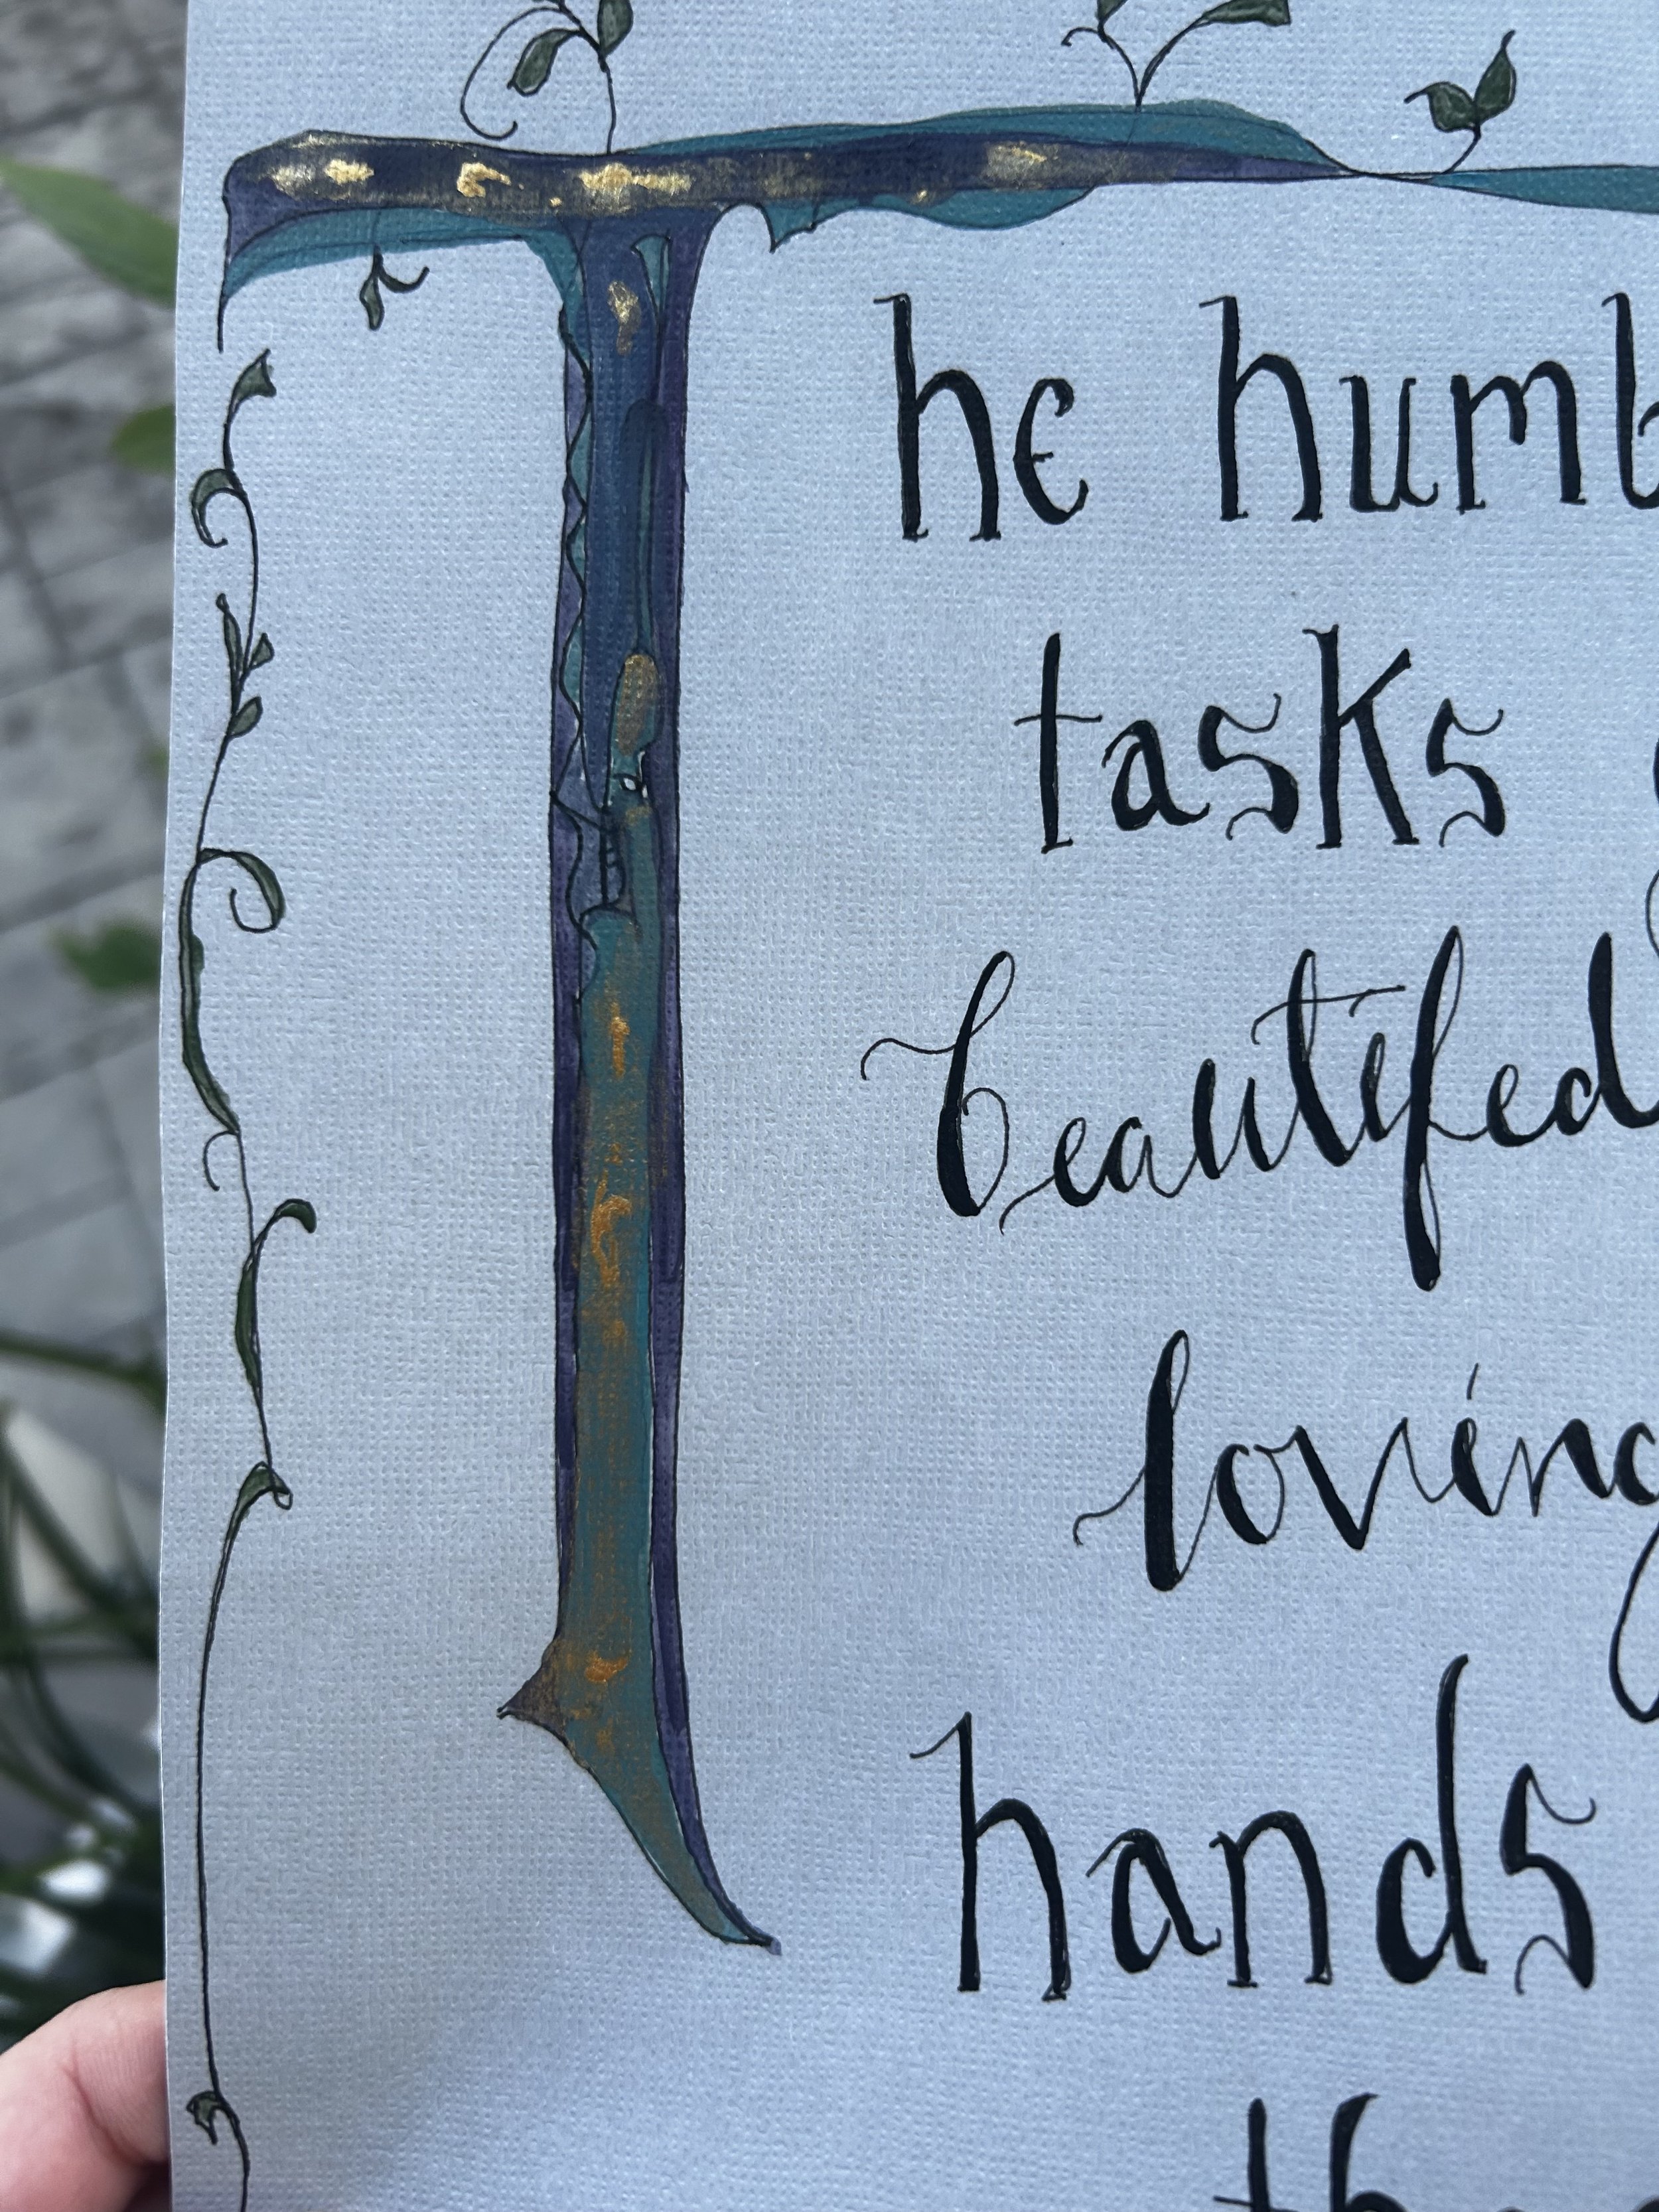 The humb
tasks
beautifed
loving
hands
the